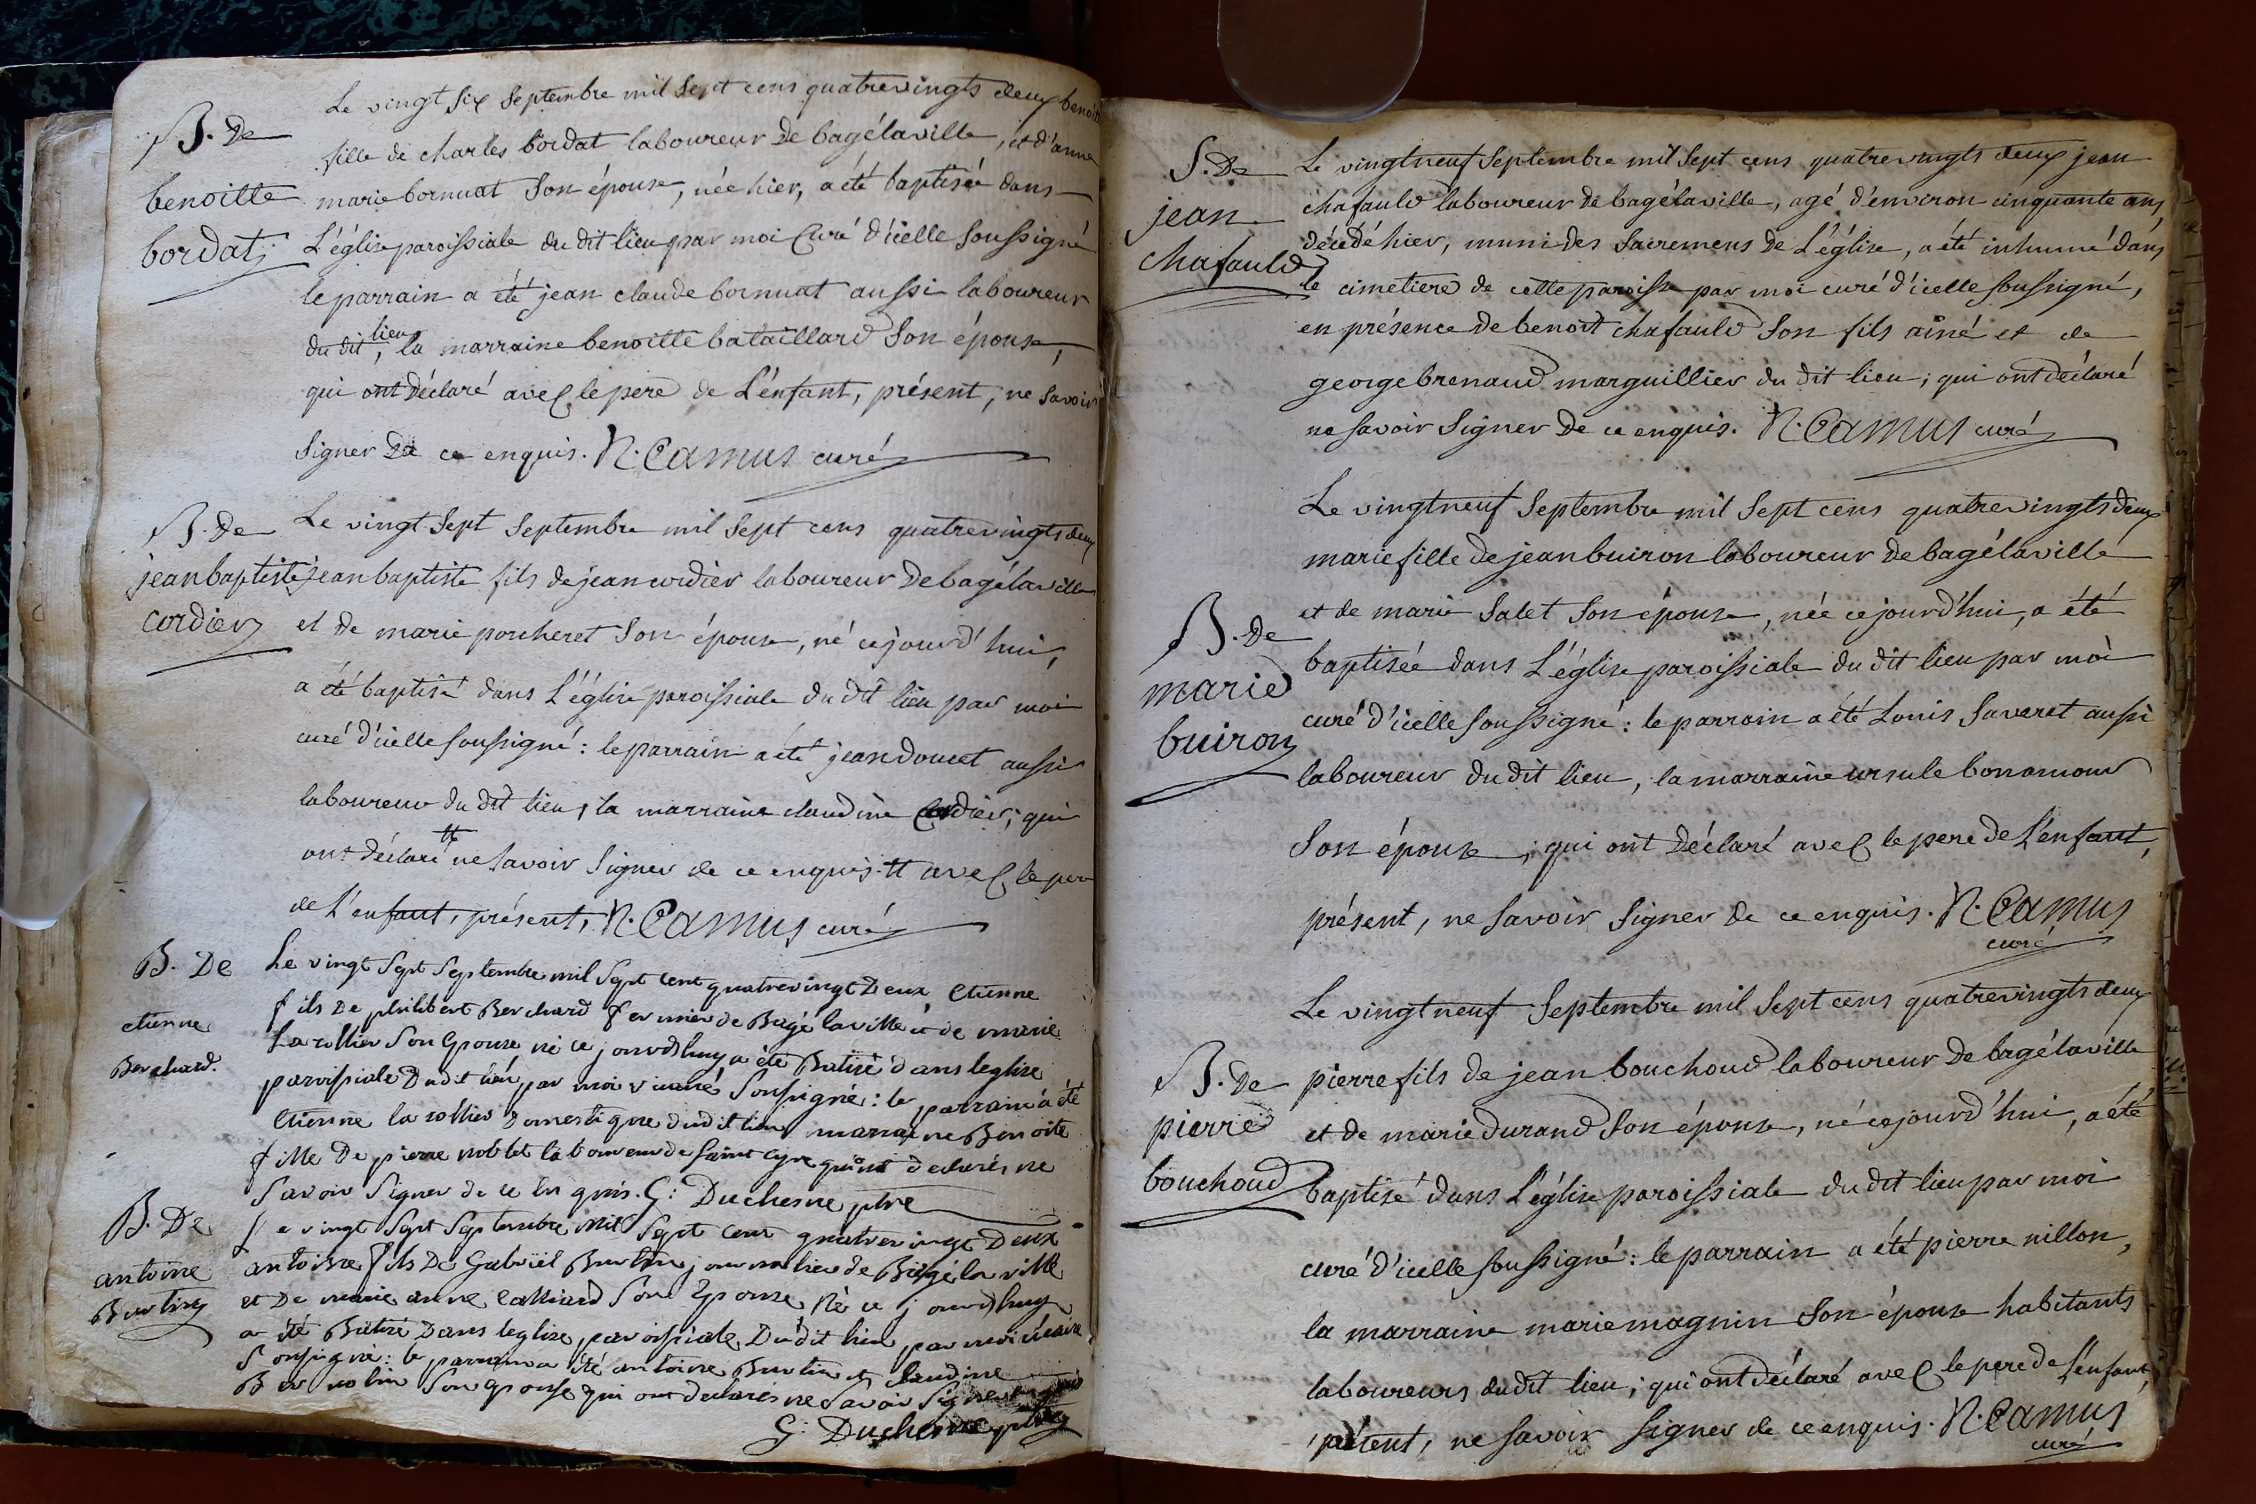 B. De
benoitte
bordat
Le vingt six septembre mil sept cens quatrevingts deux benoit
fille de charles bordat laboureur de bagélaville, et d'anne
marie bornuat son épouse, née hier, a été baptisée dans
L'église paroissiale du dit lieu par moi Curé d'icelle soussigné
le parrain a été jean claude bornuat aussi laboureur
du dit lieu, la marraine benoitte bataillard son épouse,
qui ont déclaré avec le pere de L'enfant, présent, ne savoir
signer de ce enquis. N. Camus curé
B. De
jean baptiste
cordier
Le vingt sept septembre mil sept cens quatrevingts deux
jean baptiste fils de jean cordier laboureur de bagélaville
et de marie porcheret son épouse, né ce jourd'hui,
a été baptisé dans L'église paroissiale du dit lieu par moi
curé d'icelle soussigné : le parrain a été jean doucet aussi
laboureur du dit lieu, la marraine claudine Cordier; qui
ont déclaré # ne savoir signer de ce enquis. # avec le pere
de L'enfant, présent, N. Camus curé
B. De
etienne
Berchard.
Le vingt sept septembre mil sept cent quatrevingt Deux Etienne
fils De philibert Berchard fermier de Bagé la ville et de marie
Larollier son Epouse né ce jourdhuy a été Batisé dans leglise
paroissiale Dudit lieu par moi vicaire soussigné : le parrain a été
Etienne la rollier Domestique dudit lieu marraine Benoite
fille De pierre noblet laboureur de saint Cyre qui ont declarés ne
savoir signer de ce enquis. G: Duchesne ptre
B. De
antoine
Burtin
Le vingt sept septembre mil sept cent quatrevingt Deux
antoine fils De Gabriel Burtin journalier de Bagé la ville
et De marie anne calliard son Epouse Né ce jourdhuy
a été Batisé Dans leglise paroissiale Dudit lieu par moi vicaire
soussigné : le parrain a été antoine Burtin et claudine
son epouse qui ont declarés ne savoir signer
G: Duchesne ptre
S. De
jean
chafauld
Le vingtneuf septembre mil sept cens quatrevingts deux jean
chafauld laboureur de bagélaville, agé d'environ cinquante ans,
décédé hier, muni des sacremens de L'église, a été inhumé dans
le cimetiere de cette paroisse par moi curé d'icelle soussigné,
en présence de benoît chafauld son fils aîné et de
george brenaud marguillier du dit lieu; qui ont déclaré
ne savoir signer de ce enquis. N. Camus curé
B. De
marie
buiron
Le vingtneuf septembre mil sept cens quatrevingts deux
marie fille de jean buiron laboureur de bagélaville
et de marie salet son épouse, née ce jourd'hui, a été
baptisée dans L'église paroissiale du dit lieu par moi
curé d'icelle soussigné : le parrain a été Louis savaret aussi
laboureur du dit lieu, la marraine ursule bonamour
son épouse; qui ont déclaré avec le pere de L'enfant,
présent, ne savoir signer de ce enquis. N. Camus
curé
B. De
pierre
bouchoud
Le vingtneuf septembre mil sept cens quatrevingts deux
pierre fils de jean bouchoud laboureur de bagélaville
et de marie durand son épouse, né ce jourd'hui, a été
baptisé dans L'église paroissiale du dit lieu par moi
curé d'icelle soussigné : le parrain a été pierre nillon,
la marraine marie magnin son épouse habitants
laboureurs du dit lieu; qui ont déclaré avec le pere de L'enfant,
présent, ne savoir signer de ce enquis. N. Camus
curé